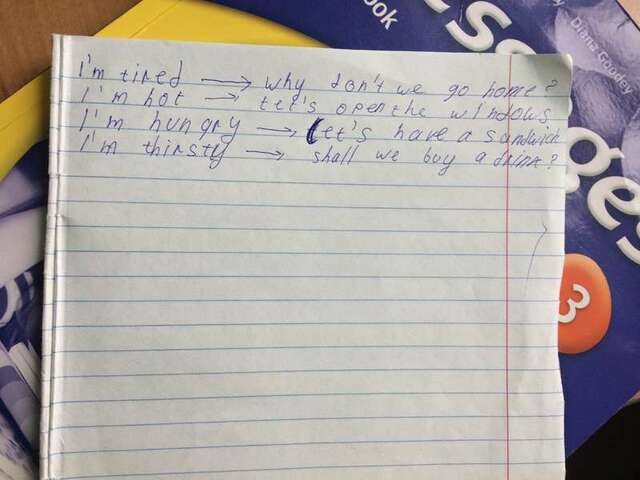 I'm tired → why don't we go home?
I'm hot → let's open the windows
I'm hungry → let's have a sandwich
I'm thirsty → shall we buy a drink?
ook
3
Diana Goodey